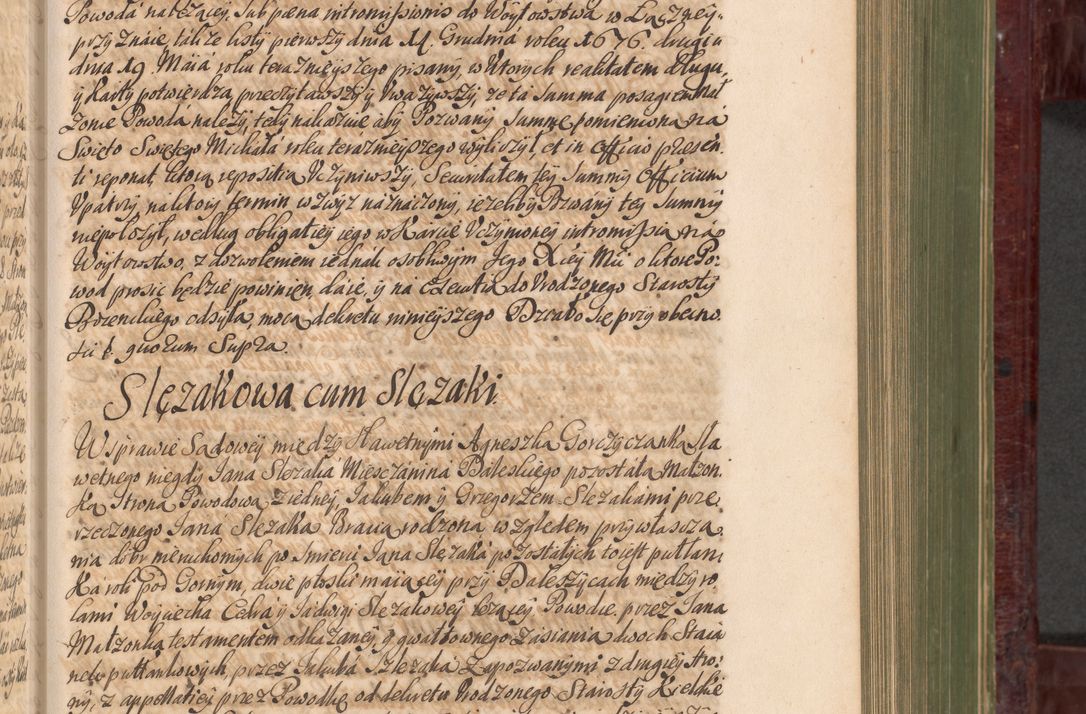 Powoda należącey, sub pæna intromissionis do Woytowstwa w Łączney
przyznaie, tak że listy pierwszy dnia 11. Grudnia roku 1676. drugi
dnia 19 Maia roku teraznieyszego pisany, w ktorych realitatem długu
y Karty potwierdza, przeczytawszy y uwazywszy, ze ta summa posagiem
Zonie Powoda nalezy, tedy nakazuie aby Pozwany Summę pomienioną na
Swięto Swiętego Michała roku teraznieyszego wyliczył, et in officio præsen
ti reponat, ktorą repositią uczyniwszy, Securitatem tey Summy Officium
upatrzy, na ktory termin wzwyz naznaczony, iezeliby Pozwany tey Summy
niepołozył, według obligatiey iego w Karcie uczynioney intromissią na
Woytowstwo, z dozwoleniem iednak osobliwym Jego Xiey Mci o ktore Po:
wod prosic będzie powinien, daie, y na to do Urodzonego Starosty
Bozenckiego odsyła, mocą dekretu ninieyszego Działo się przy obecno:
sci quorum supra.
Slęzakowa cum Slęzaki.
W sprawie Sądowey między Sławetnymi Agneszką Gorczyczanką Sła
wetnego niegdy Jana Slęzaka Miesczanina Daleskiego pozostałą Małzon
ką Stroną Powodową, z iedney, Jakubem y Grzegorzem Slęzakami prze
rzeczonego Jana Slęzaka Bracią rodzoną względem przywłascza
nia dobr nieruchomych po smierci Jana Slęzaka pozostałych to iest pułłan
ka roli pod Gornym, dwie płoskie maiącey przy Daleszycach między ro
lami Woyciecha Cedra y Jadwigi Slęzakowey lezącey Powodce przez Jana
Małzonka testamentem odkazaney, y gwałtownego zasiania dwoch Staia
nek pułłankowych, przez Jakuba Slęzaka Zapozwanymi z drugiey stro:
ny, z appellatiey przez Powodkę od dekretu Urodzonego Starosty Kielckie